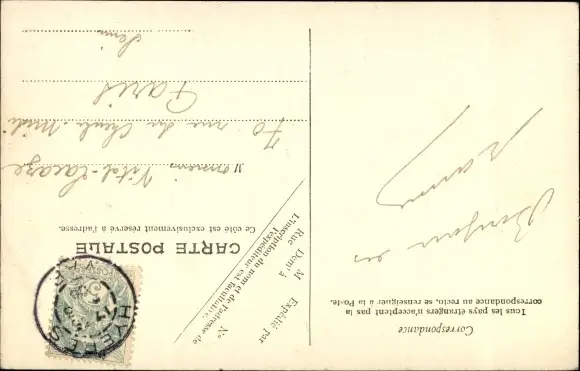 Correspondance
Tous les pays étrangers n'acceptent pas la
correspondance au recto, se renseigner à la Poste.
Bonjour
Expédié par
M
Dem' à
Rue
No
L'inscription du nom et de l'adresse de
l'expéditeur est facultative.
HYERES
VAR
CARTE POSTALE
Ce côté est exclusivement réservé à l'adresse.
Monsieur Vital-Lacaze
70 rue du Cherche-Midi
Paris
Seine